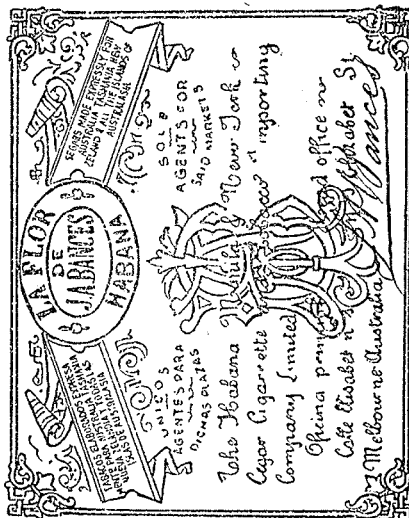 LA FLOR
DE
J.A.BANCES
HABANA
TABACOS ELABORADOS
ESPRESAMENTE PARA
Y TODAS LAS ISLAS
DE AUSTRALASIA
SEGARS MADE EXPRESSLY FOR
AUSTRALIA TASMANIA NEW
ZELAND & ALL THE ISLANDS OF
AUSTRALASIA
UNICOS
AGENTES PARA
DICHAS PLAZAS
SOLE
AGENTS FOR
SAID MARKETS
The Habana Manila & New York
Cigar Cigarrette importing
Company Limited
Oficina office
Calle Elisabet Elizabet St
Melbourne Australia
Bances